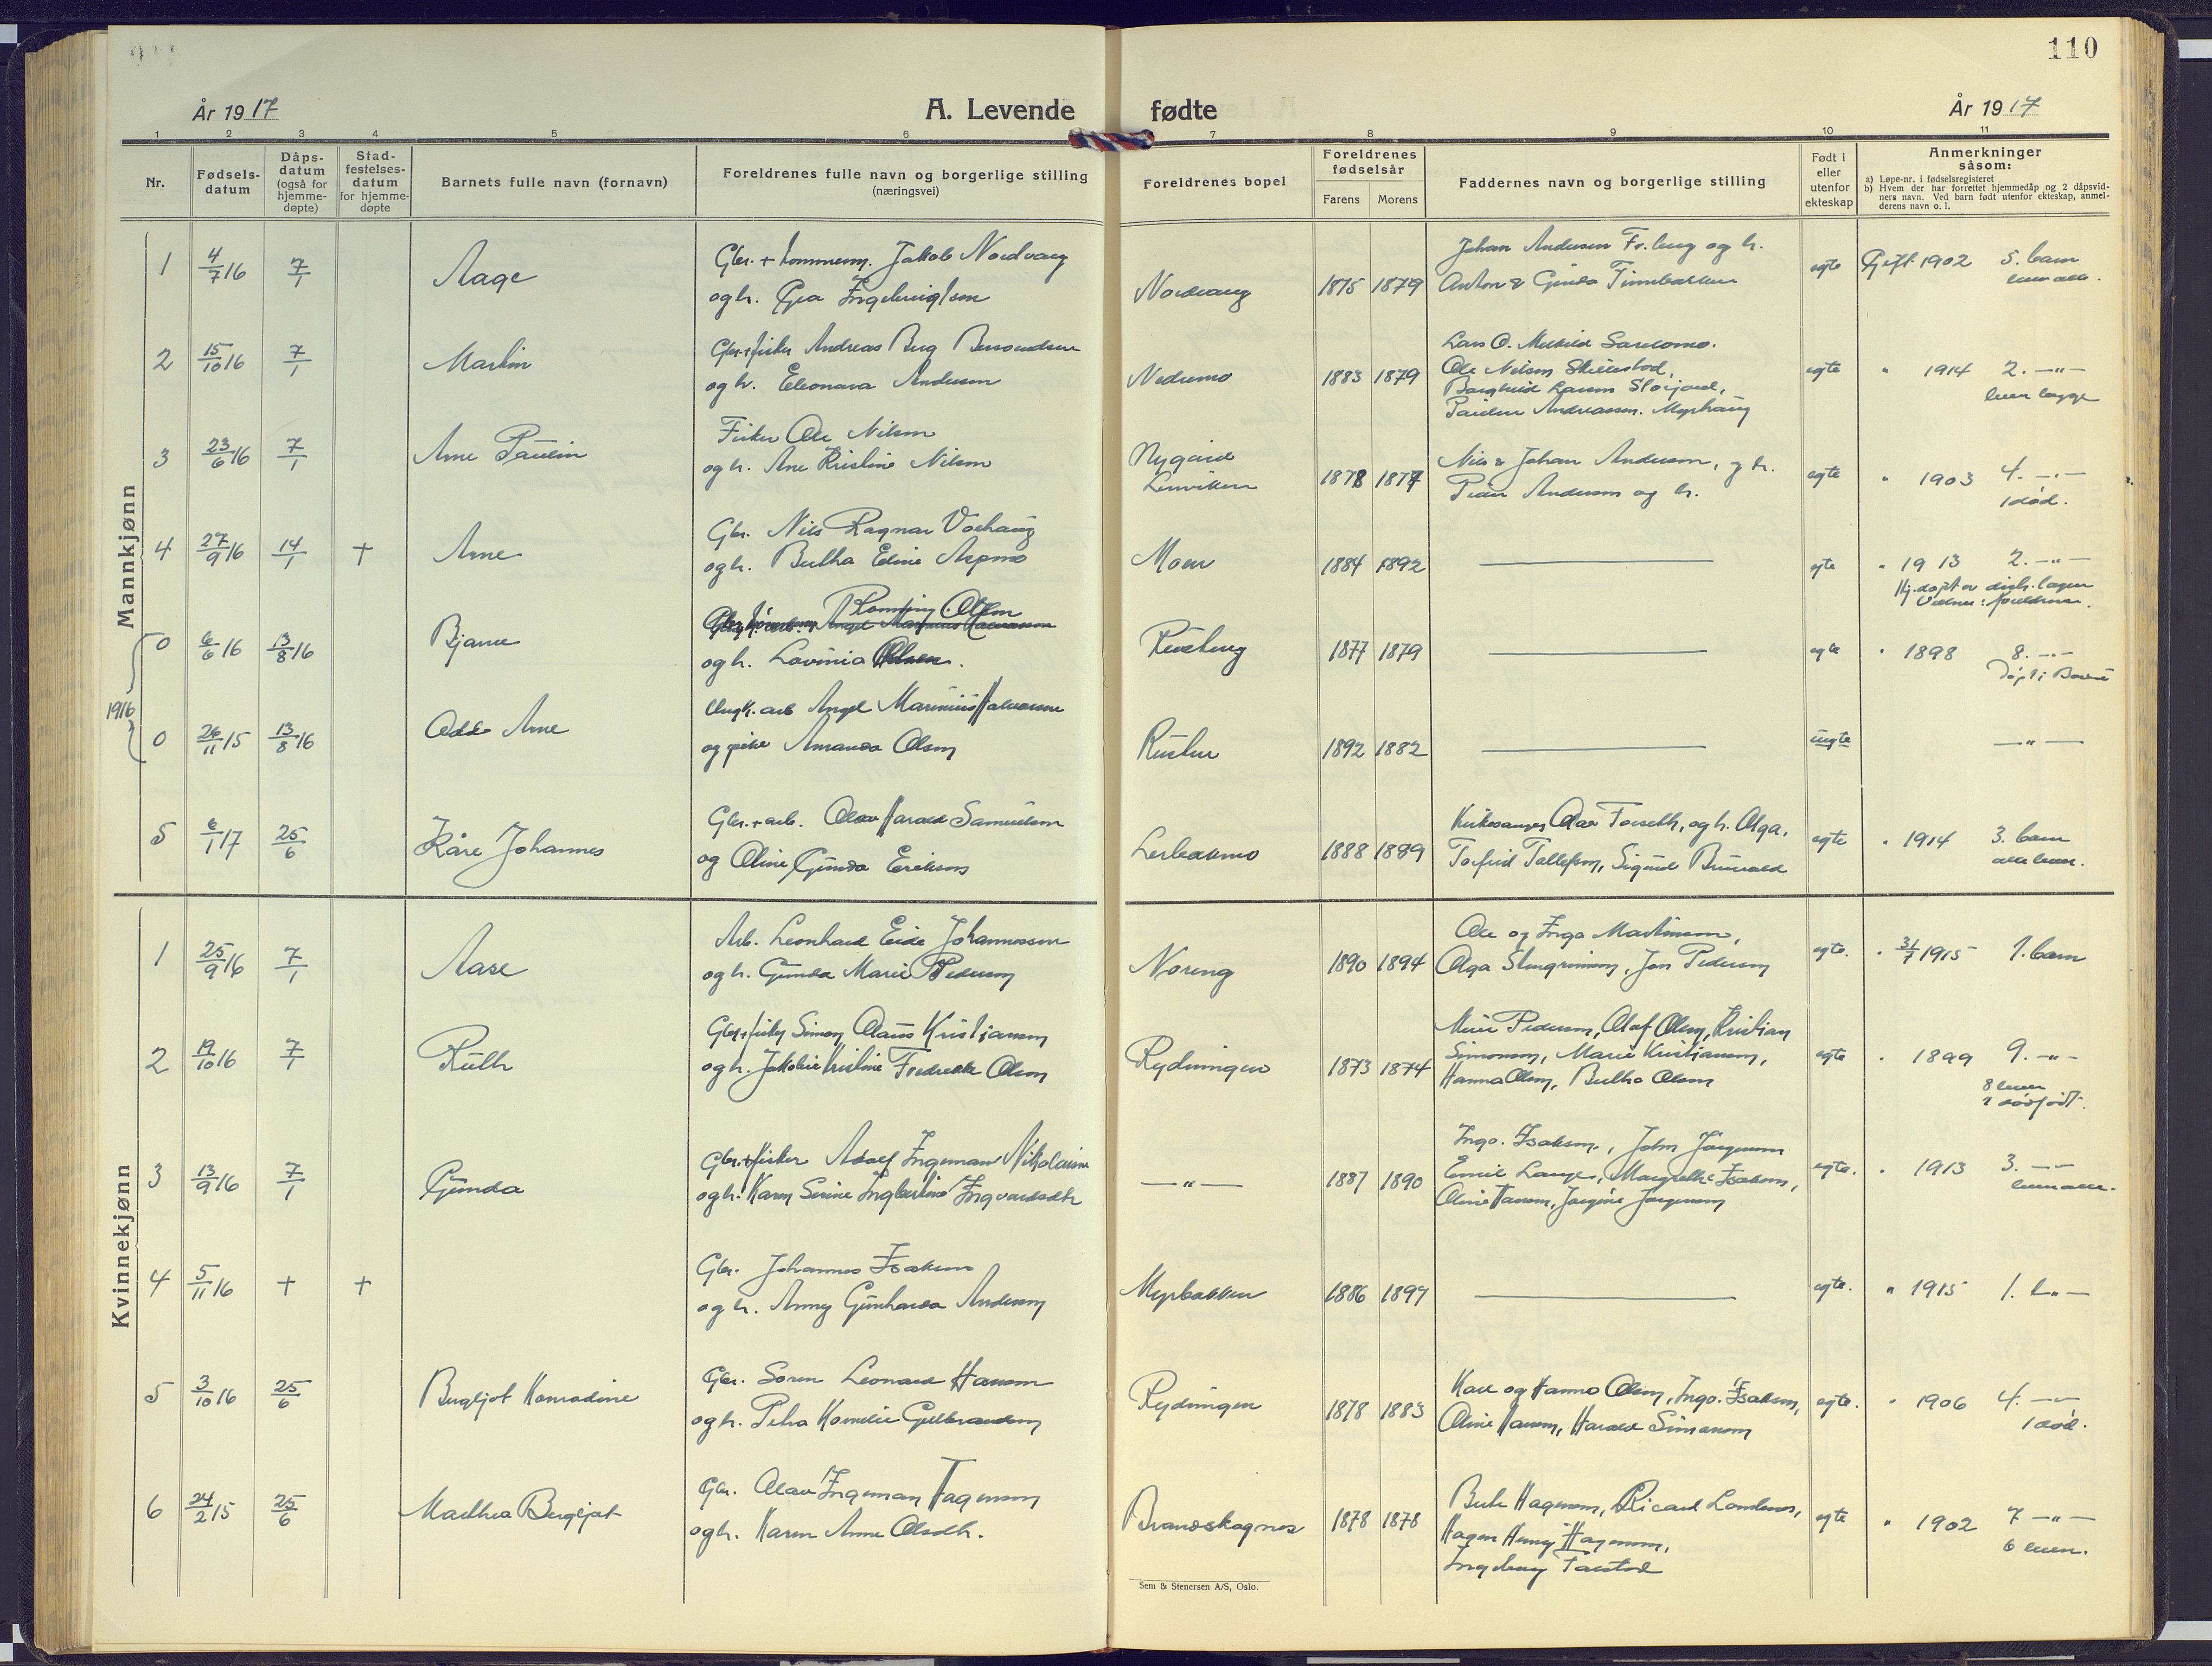 110
År 1917
A. Levende fødte
År 1917
1 2 3 4 5 6 7 8 9 10 11
Nr.
Fødsels-
datum
Dåps-
datum
(også for
hjemme-
døpte)
Stad-
festelses-
datum
for hjemme-
døpte
Barnets fulle navn (fornavn)
Foreldrenes fulle navn og borgerlige stilling
(næringsvei)
Foreldrenes bopel
Foreldrenes
fødselsår
Farens Morens
Faddernes navn og borgerlige stilling
Født i
eller
utenfor
ekteskap
Anmerkninger
såsom:
a) Løpe-nr. i fødselsregisteret
b) Hvem der har forrettet hjemmedåp og 2 dåpsvid-
ners navn. Ved barn født utenfor ekteskap, anmel-
derens navn o. l.
Mannkjønn
1 4/7 16 7/1 Aage
Gbr. + Jakob Nordvang
og h. Gea
Nordvang 1875 1879
Johan Andersen og h.
Anton & Ginda
egte Gift 1902 5. barn
lever alle.
2 15/10 16 7/1 Martin
Gbr. + fisker Andreas Berg
og h. Eleonara Andersen
Nedremo 1883 1879
Lars O.
Ole Nilsen
Larsen
Andreassen
egte " 1914 2. -"-
lever begge
3 23/6 16 7/1 Arne Paulin
Fisker Ole Nilsen
og h. Ane Kristine Nilsen
Nygård
Lenviken 1878 1877
Nils & Johan Andersen, og h.
Peder Andersen og h.
egte " 1903 4. -"-
1 død.
4 27/9 16 14/1 + Arne
Gbr. Nils Ragnar
og h. Edine Aspmo
Moen 1884 1892
egte " 1913 2. -"-
Hj. døpt av
1916
0 6/6 16 13/8 16 Bjarne
Olsen
og h. Lovinia Olsen.
1877 1879
egte " 1898 8. -"-
Døpt i
0 26/11 15 13/8 16 Odd Arne
Ungk. arb Angel Marinius Halvorsen
og pike Amanda Olsen
1892 1882
uegte -"-
5 6/1 17 25/6 Kåre Johannes
Gbr. + arb. Olav Harald Samuelsen
og Oline Gunda Eriksen
1888 1889
Kirkesanger Olav Forseth, og h. Olga,
Torfrid Tollefsen, Sigurd
egte " 1914 3. barn
alle lever.
Kvinnekjønn
1 25/9 16 7/1 Aase
Arb. Leonhard Eide Johannessen
og h. Gunda Marie Pedersen
Noreng 1890 1894
Ole og Inga Martinsen,
Olga Steingrimsen, Jon Pedersen
egte. " 31/7 1915 1. barn
2 19/10 16 7/1 Ruth
Gbr. + fisker Simon Olaus Kristiansen
og h. Jakobie Kristine Fredrekke Olsen
Rydningen 1873 1874
Pedersen, Olaf Olsen, Kristian
Simonsen, Marie Kristiansen,
Hanna Olsen, Olsen
egte " 1899 9. -"-
8 lever
1 dødfødt.
3 13/9 16 7/1 Gunda
Gbr. + fisker Adolf Ingeman Nikolaisen
og h. Karen Serine Ingvardsdtr
-"- 1887 1890
Inga. Isaksen, John Jørgensen
Emil Lange, Margrethe Isaksen,
Oline Hansen, Jørgine Jørgensen
egte. " 1913 3. -"-
lever alle.
4 5/11 16 + +
Gbr. Johannes Isaksen
og h. Anny Gunharda Andersen
Myrbakken 1886 1897
egte. " 1915 1. b -"-
5 3/10 16 25/6 Bergljot Konradine
Gbr. Søren Leonard Hansen
og h. Petra Kornelie Gulbrandsen
Rydningen 1878 1883
Karl og Hanna Olsen, Inga. Isaksen,
Oline Hansen, Harald Simonsen
egte. " 1906 4. -"-
1 død.
6 24/2 15 25/6 Marthea Bergljot
Gbr. Olav Ingeman Hagensen
og h. Karen Anne Olsdtr.
Brandskognes 1878 1878
Hagensen, Ricard
Hagen Henry Hagensen,
Ingeborg
egte " 1902 7 -"-
6 lever.
Sem & Stenersen A/S, Oslo.